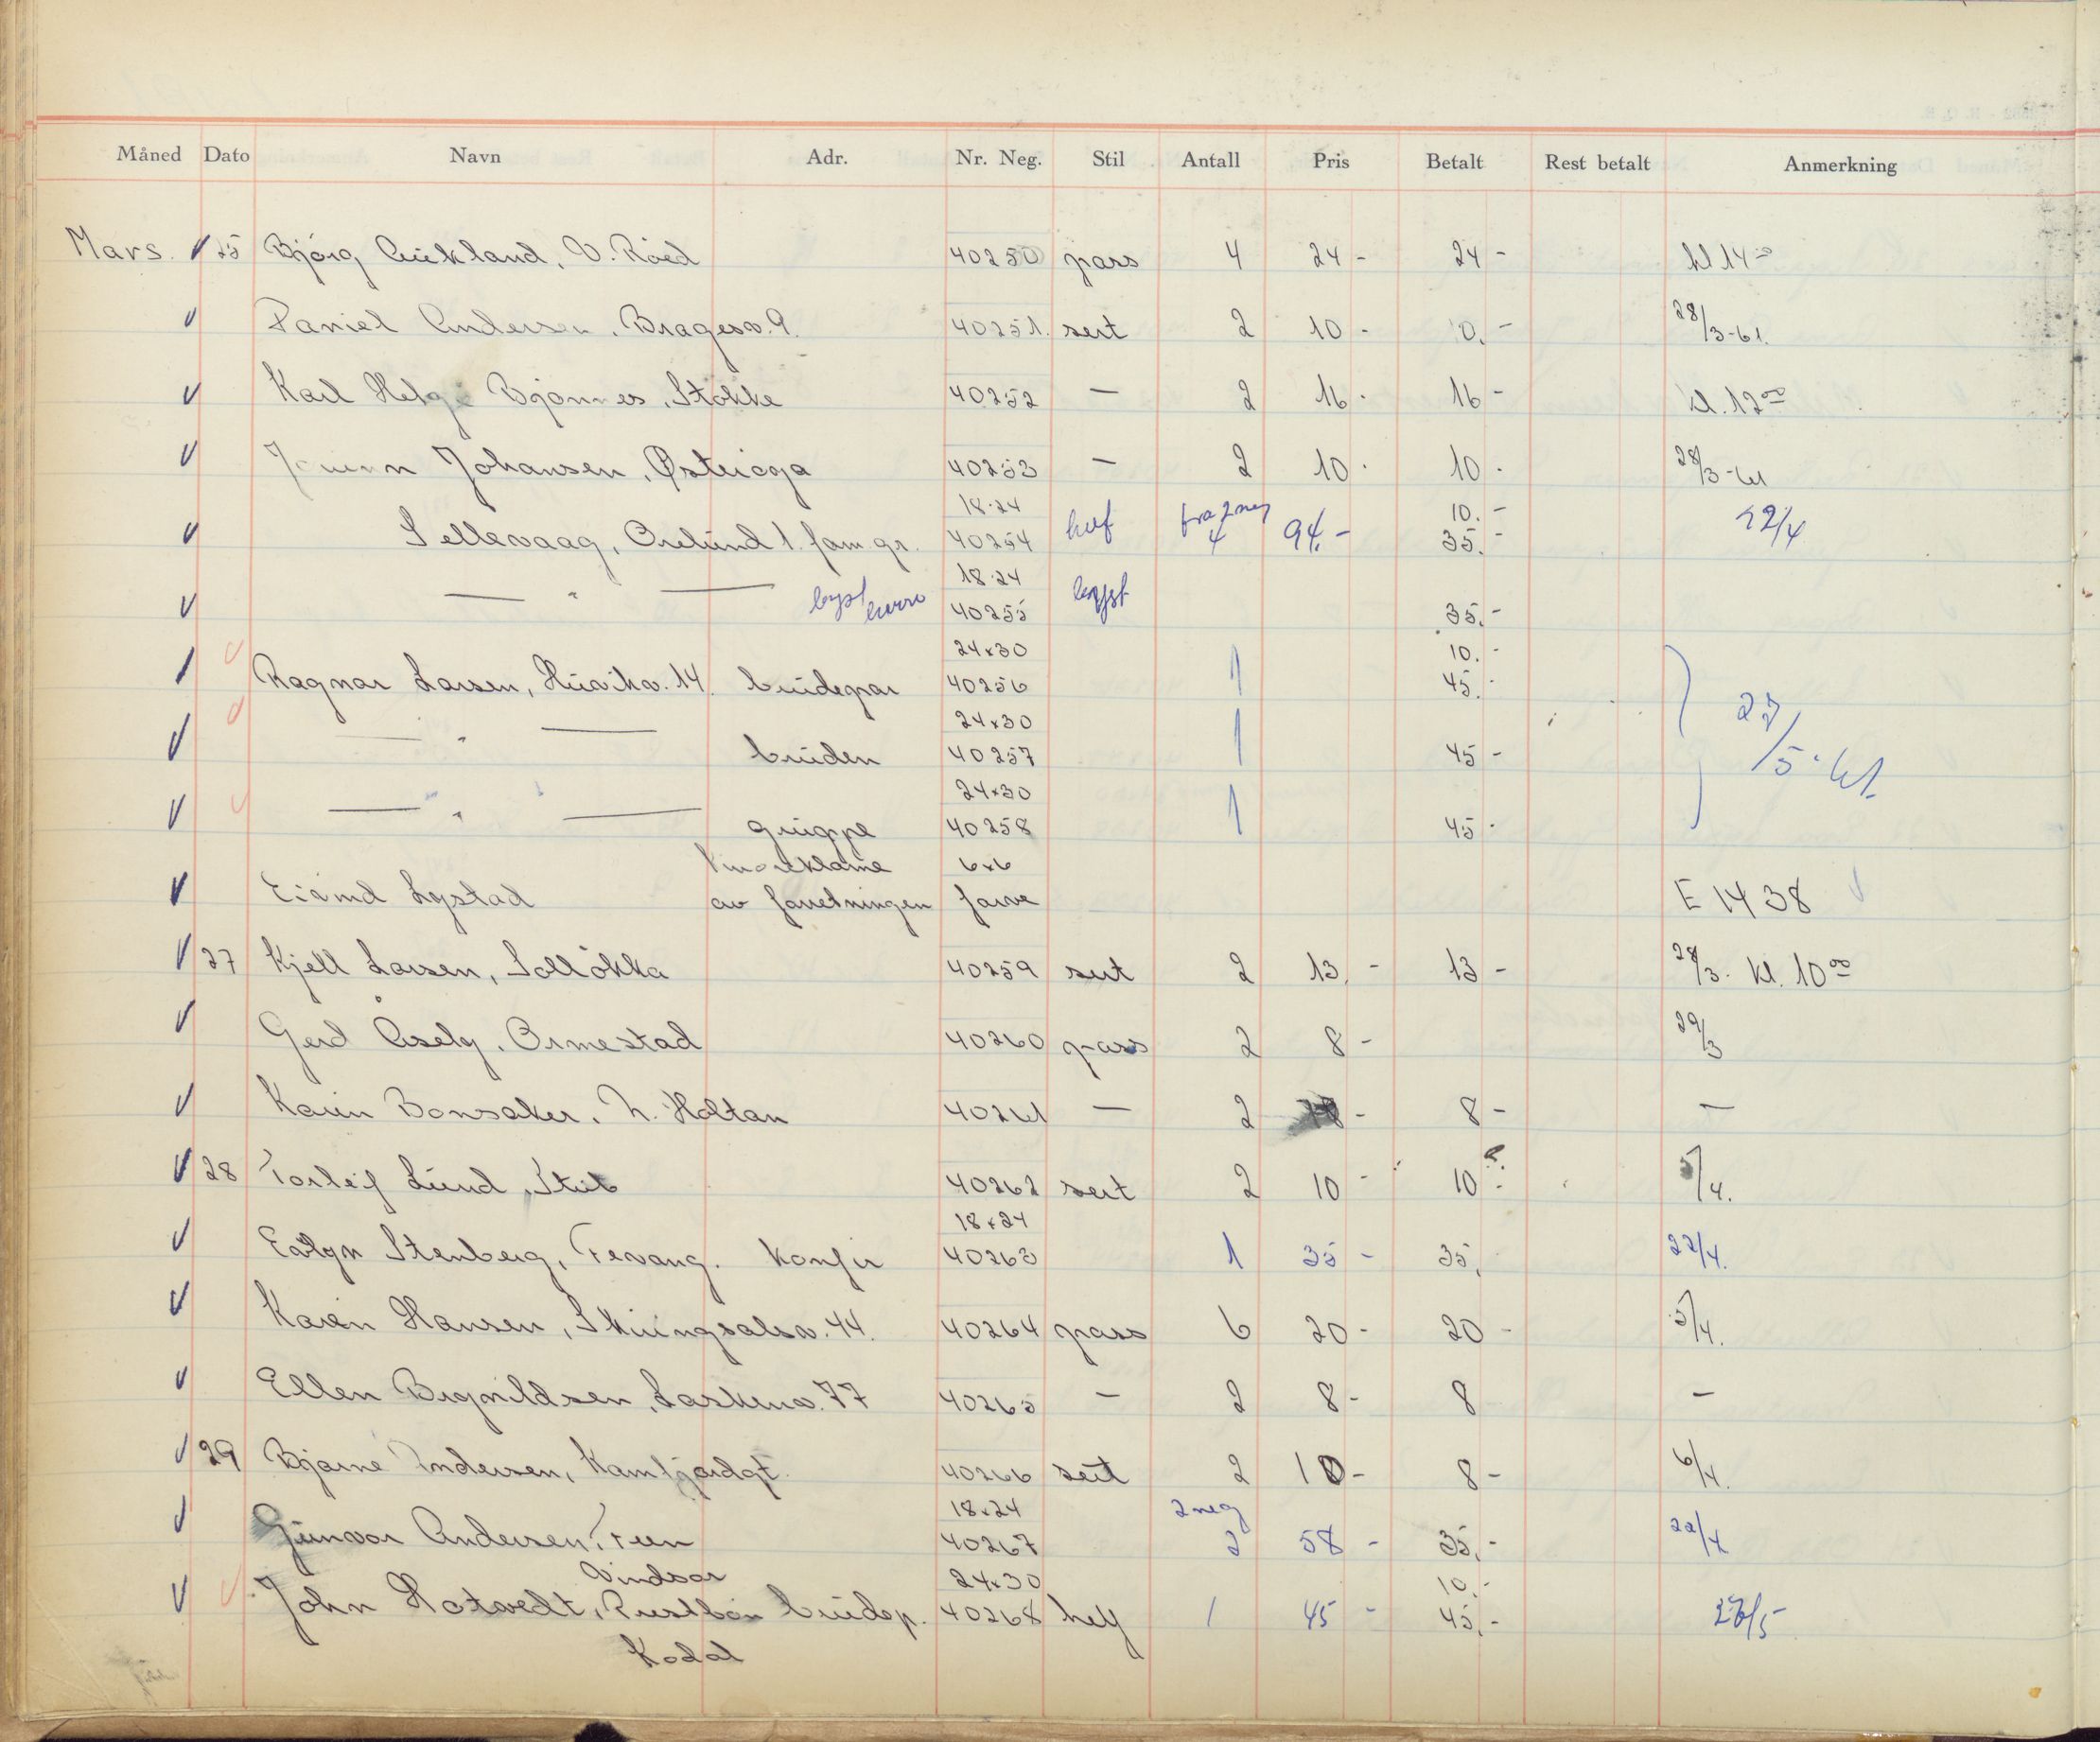 Måned Dato Navn Adr. Nr. Neg. Stil Antall Pris Betalt Rest betalt Anmerkning
Mars. 25 Bjørg Aukland, V. Råed 40250 pass 4 24 - 24 - kl 14 00
Daniel Andersen, Bragesv. 9. 40251. sert 2 10 - 10. - 28/3-61.
Karl Helge Bjønnes, Stokke 40252 — 2 16 - 16 - kl. 12 00
Johansen, Østerøya 40253 — 2 10 - 10 - 28/3 - kl
18·24 fra 2 neg 10. -
Sellevaag, Orelund 1. fam. gr. 40254 4 94. - 35. - 22/4
18·24
— " — byst 40255 byst 35. -
24×30 10. -
Ragnar Larsen, Husvikv. 14. brudepar 40256 1 45. -
24×30
— " — bruden 40257 1 45 - 27/5 - kl.
24×30
— " — gruppe 40258 1 45 -
Kinoreklame 6×6
Eivind Lystad av forretningen farve E 1438
27 Kjell Larsen, Solløkka 40259 sert 2 13. - 13 - 28/3. kl. 10 00
Gerd Åsely, Ormestad 40260 pass 2 8 - 29/3
Karin Bonsaker, N. Holtan 40261 — 2 8 - —
28 Torleif Lund, Stub 40262 sert 2 10 - 10 - 5/4.
18×24
Evelyn Stenberg, Tevang. Konfir 40263 1 35 - 35. 22/4.
Karen Hansen, Skiringsalsv. 44. 40264 pass 6 20 - 20 - 5/4.
Ellen Brynildsen, Laskenv. 77 40265 — 2 8 - 8 —
29 Bjarne Andersen, Kamfjordgt. 40266 sert 2 10 - 8 - 6/4.
18×24 2 neg
Gunvor Andersen, Freen 40267 2 58 - 35. - 22/4
Vindsor 24×30 10. -
John Hotvedt, Prestbøen brudep. 40268 helf 1 45 - 45. - 27/5
Kodal